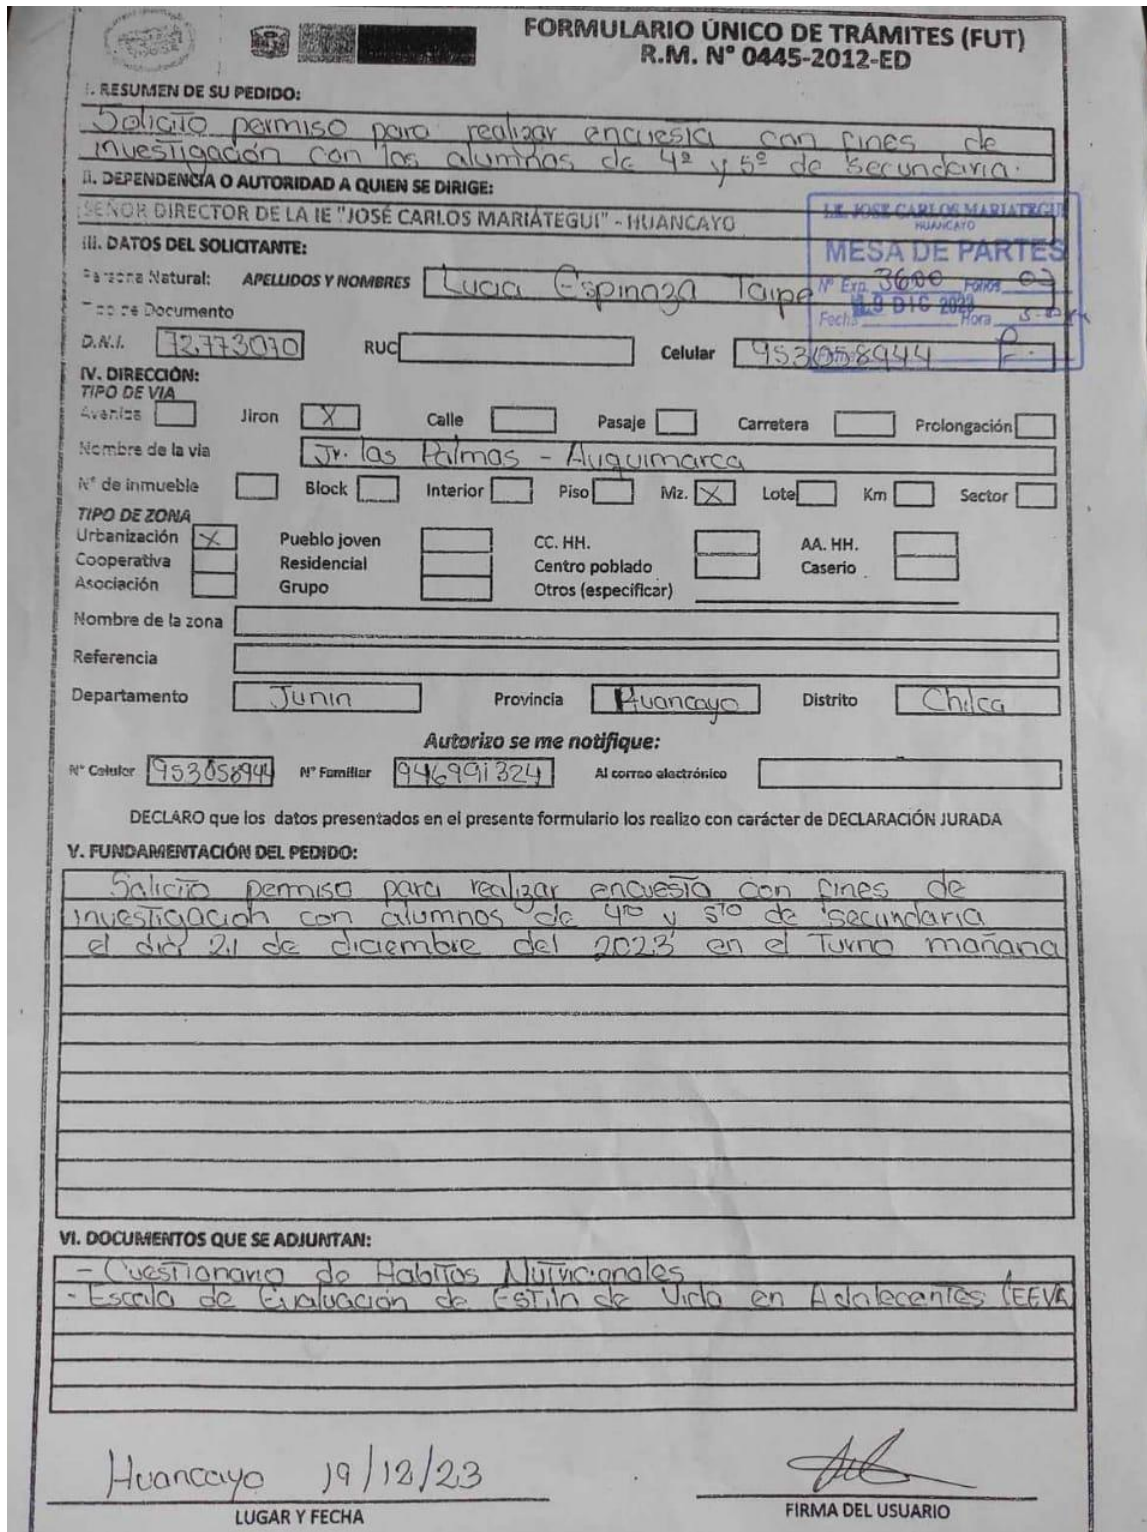 FORMULARIO ÚNICO DE TRÁMITES (FUT)
R.M. N° 0445-2012-ED
I. RESUMEN DE SU PEDIDO:
Solicito permiso para realizar encuesta con fines de
investigación con los alumnos de 4º y 5º de secundaria.
II. DEPENDENCIA O AUTORIDAD A QUIEN SE DIRIGE:
SEÑOR DIRECTOR DE LA IE "JOSÉ CARLOS MARIÁTEGUI" - HUANCAYO
I.E. JOSE CARLOS MARIATEGUI
HUANCAYO
MESA DE PARTES
N° Exp. 3600 Folios 02
DIC 2023
Fecha Hora
III. DATOS DEL SOLICITANTE:
Persona Natural: APELLIDOS Y NOMBRES Lucia Espinoza Taipe
Tipo de Documento
D.N.I. 72773070 RUC Celular 953058944
IV. DIRECCIÓN:
TIPO DE VIA
Avenida Jiron X Calle Pasaje Carretera Prolongación
Nombre de la via Jr. las Palmas - Auquimarca
N° de inmueble Block Interior Piso Mz. X Lote Km Sector
TIPO DE ZONA
Urbanización X Pueblo joven CC. HH. AA. HH.
Cooperativa Residencial Centro poblado Caserio
Asociación Grupo Otros (especificar)
Nombre de la zona
Referencia
Departamento Junin Provincia Huancayo Distrito Chilca
Autorizo se me notifique:
N° Celular 953058944 N° Familiar 946991324 Al correo electrónico
DECLARO que los datos presentados en el presente formulario los realizo con carácter de DECLARACIÓN JURADA
V. FUNDAMENTACIÓN DEL PEDIDO:
Solicito permiso para realizar encuesta con fines de
investigación con alumnos de 4to y 5to de secundaria
el día 21 de diciembre del 2023 en el Turno mañana
VI. DOCUMENTOS QUE SE ADJUNTAN:
- Cuestionario de Habitos Nutricionales
- Escala de Evaluación de Estilo de Vida en Adolecentes (EEVA
Huancayo 19/12/23
LUGAR Y FECHA FIRMA DEL USUARIO